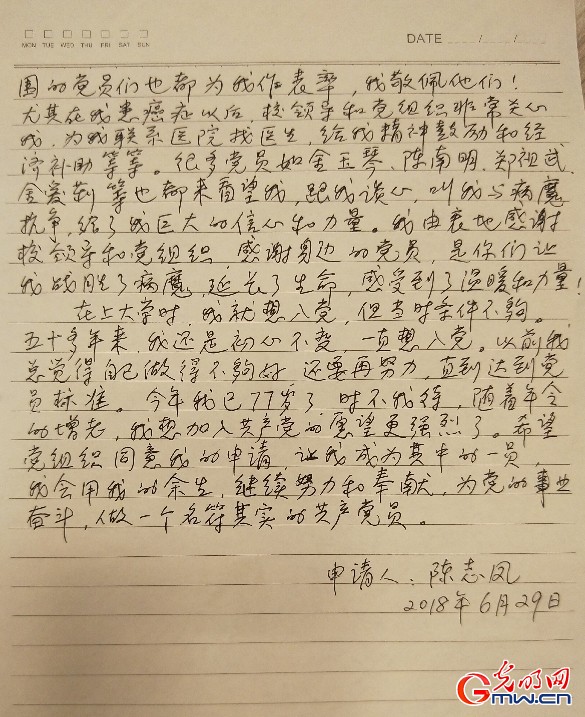 MON TUE WED THU FRI SAT SUN
DATE / /
围的党员们也都为我作表率，我敬佩他们！
尤其在我患癌症以后，校领导和党组织非常关心
我，为我联系医院找医生，给我精神鼓励和经
济补助等等。很多党员如金玉琴、陈南明、郑祖武、
金爱莉等也都来看望我，跟我谈心，叫我与病魔
抗争，给了我巨大的信心和力量。我由衷地感谢
校领导和党组织，感谢身边的党员，是你们让
我战胜了病魔，延长了生命，感受到了温暖和力量！
在上大学时，我就想入党，但当时条件不够。
五十多年来，我还是初心不变，一直想入党。以前我
总觉得自己做得不够好，还要再努力，直到达到党
员标准。今年我已77岁了，时不我待，随着年令
的增老，我想加入共产党的愿望更强烈了。希望
党组织同意我的申请，让我成为其中的一员，
我会用我的余生，继续努力和奉献，为党的事业
奋斗，做一个名符其实的共产党员。
申请人：陈志凤
2018年6月29日
光明网
Gmw.cn